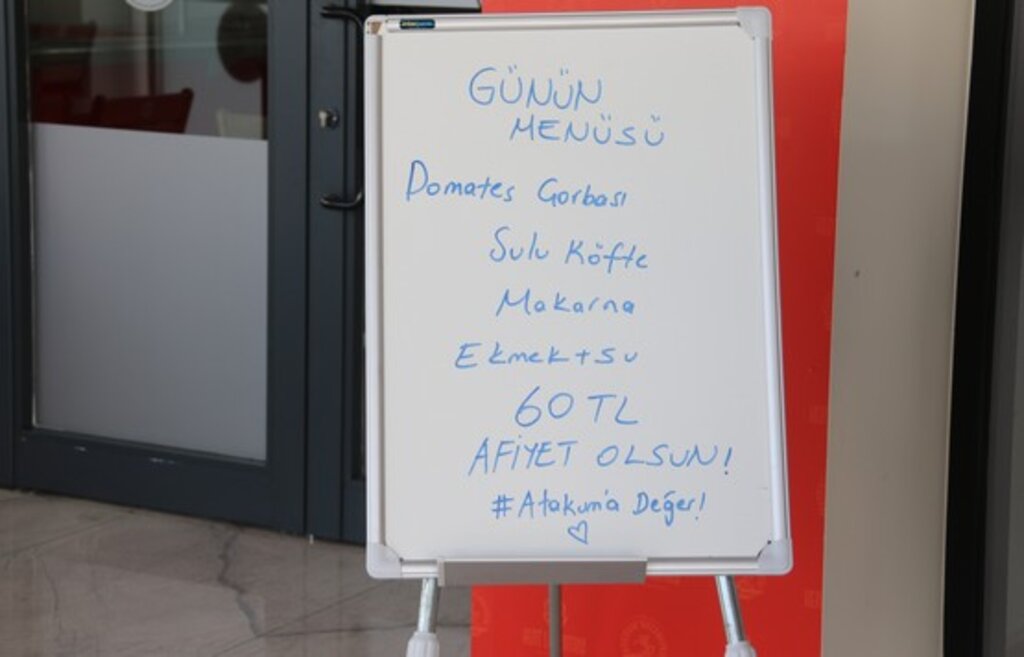 GÜNÜN
MENÜSÜ
Domates Çorbası
Sulu Köfte
Makarna
Ekmek + su
60 TL
AFİYET OLSUN!
#Atakum'a Değer!